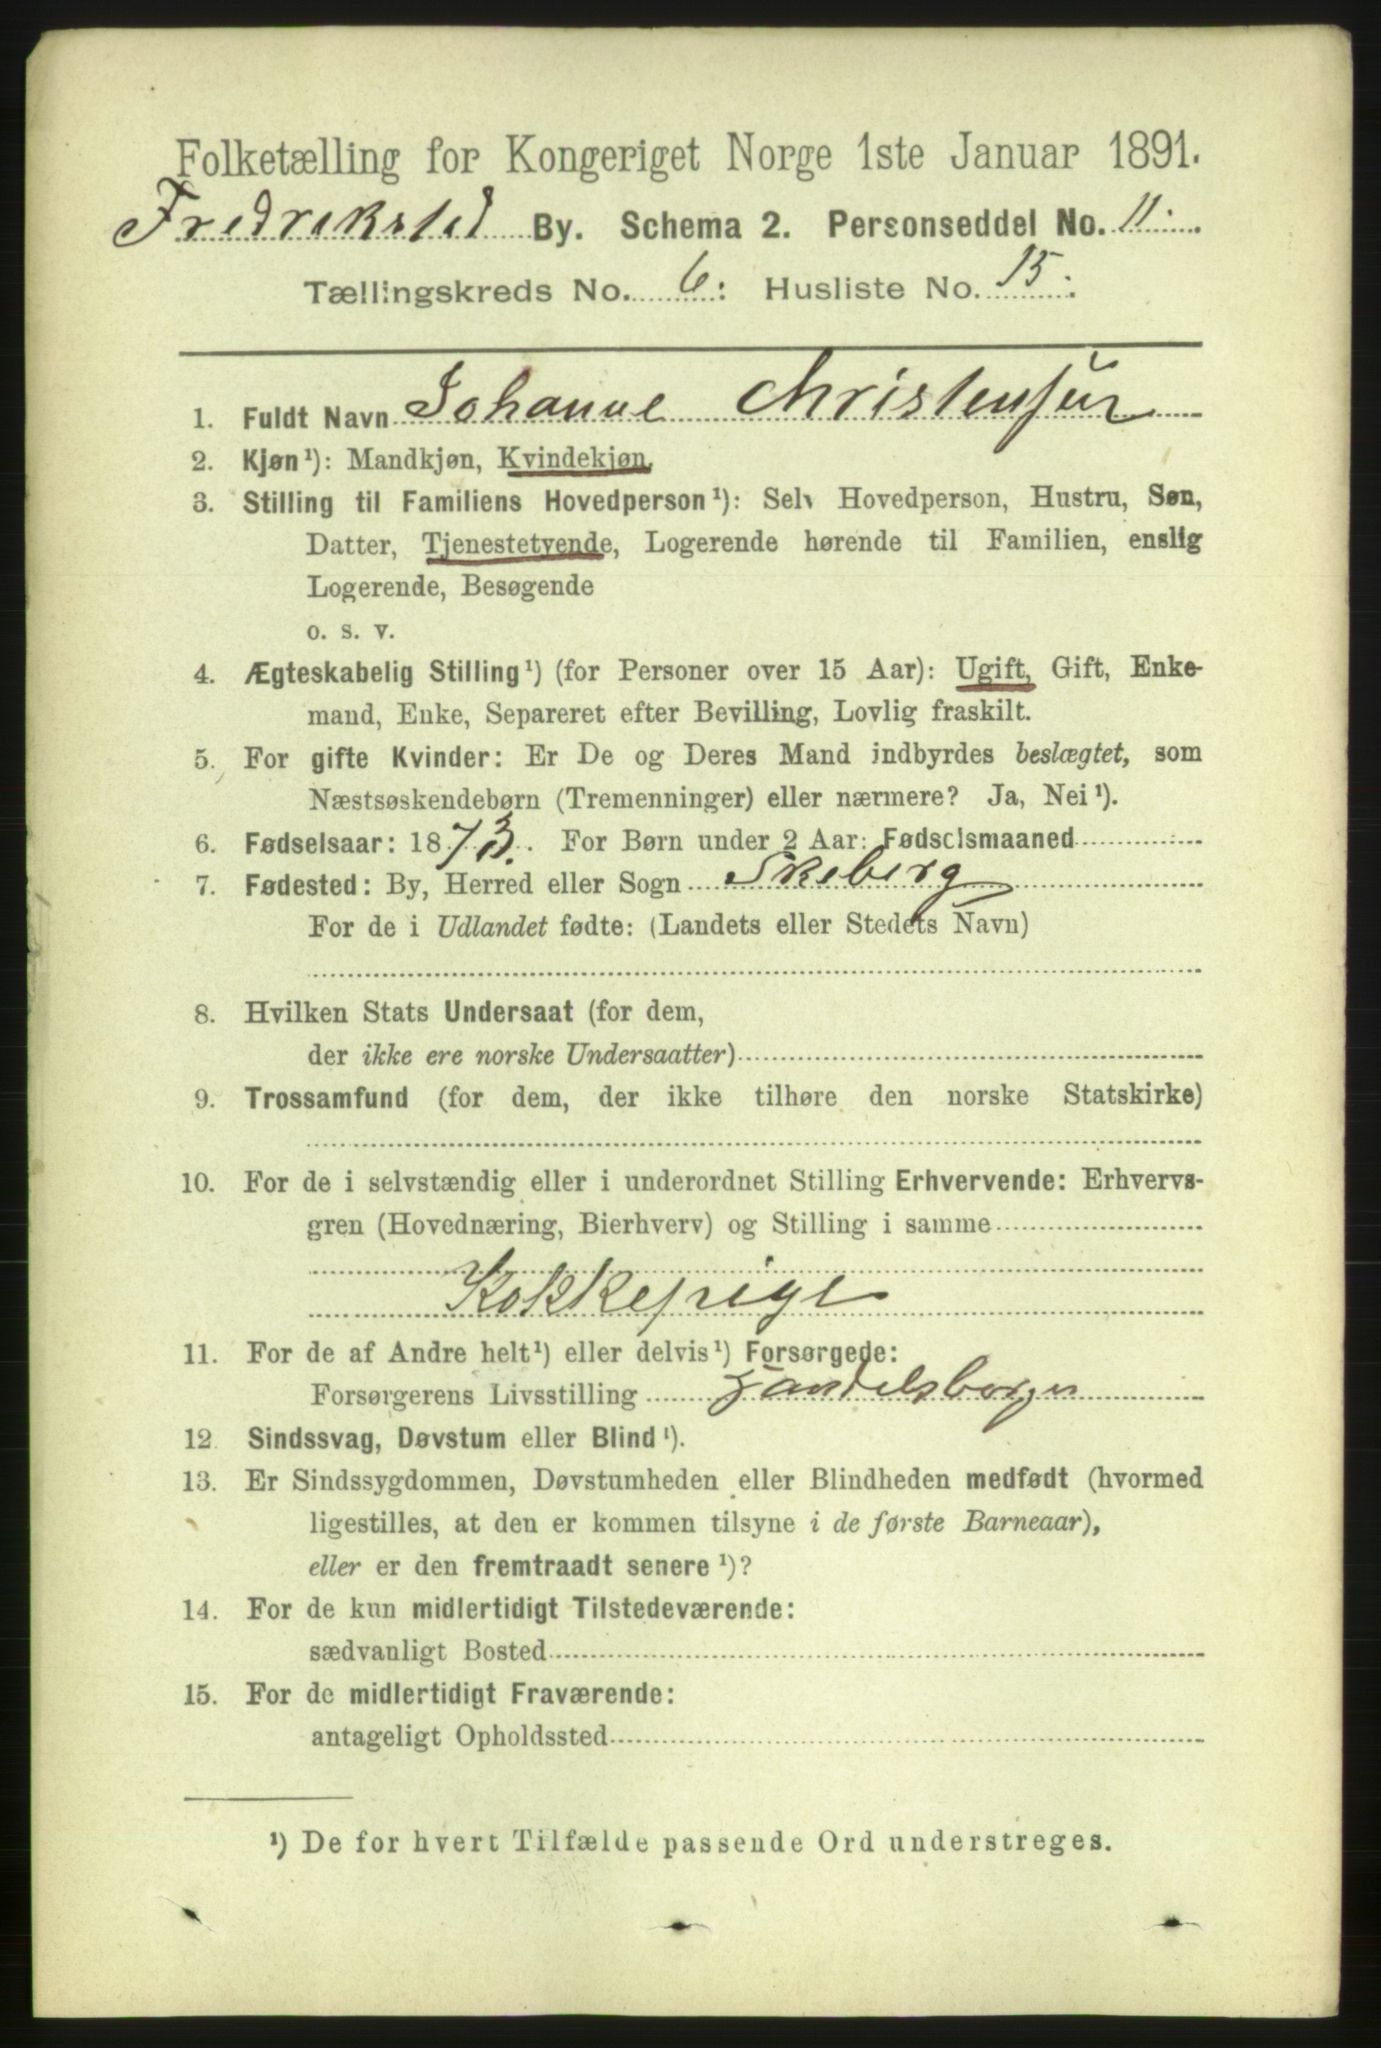 Folketælling for Kongeriget Norge 1ste Januar 1891.
Fredriksted By. Schema 2. Personseddel No. 11.
Tællingskreds No. 6: Husliste No. 15.
1. Fuldt Navn Johanne Christensen
2. Kjøn¹): Mandkjøn, Kvindekjøn.
3. Stilling til Familiens Hovedperson¹): Selv Hovedperson, Hustru, Søn,
Datter, Tjenestetyende, Logerende hørende til Familien, enslig
Logerende, Besøgende
o. s. v.
4. Ægteskabelig Stilling¹) (for Personer over 15 Aar): Ugift, Gift, Enke-
mand, Enke, Separeret efter Bevilling, Lovlig fraskilt.
5. For gifte Kvinder: Er De og Deres Mand indbyrdes beslægtet, som
Næstsøskendebørn (Tremenninger) eller nærmere? Ja, Nei¹).
6. Fødselsaar: 1873. For Børn under 2 Aar: Fødselsmaaned
7. Fødested: By, Herred eller Sogn Skeberg
For de i Udlandet fødte: (Landets eller Stedets Navn)
8. Hvilken Stats Undersaat (for dem,
der ikke ere norske Undersaatter)
9. Trossamfund (for dem, der ikke tilhøre den norske Statskirke)
10. For de i selvstændig eller i underordnet Stilling Erhvervende: Erhvervs-
gren (Hovednæring, Bierhverv) og Stilling i samme
Kokkepige
11. For de af Andre helt¹) eller delvis¹) Forsørgede:
Forsørgerens Livsstilling Handelsborger
12 Sindssvag, Døvstum eller Blind¹).
13. Er Sindssygdommen, Døvstumheden eller Blindheden medfødt (hvormed
ligestilles, at den er kommen tilsyne i de første Barneaar),
eller er den fremtraadt senere¹)?
14. For de kun midlertidigt Tilstedeværende:
sædvanligt Bosted
15. For de midlertidigt Fraværende:
antageligt Opholdssted
¹) De for hvert Tilfælde passende Ord understreges.